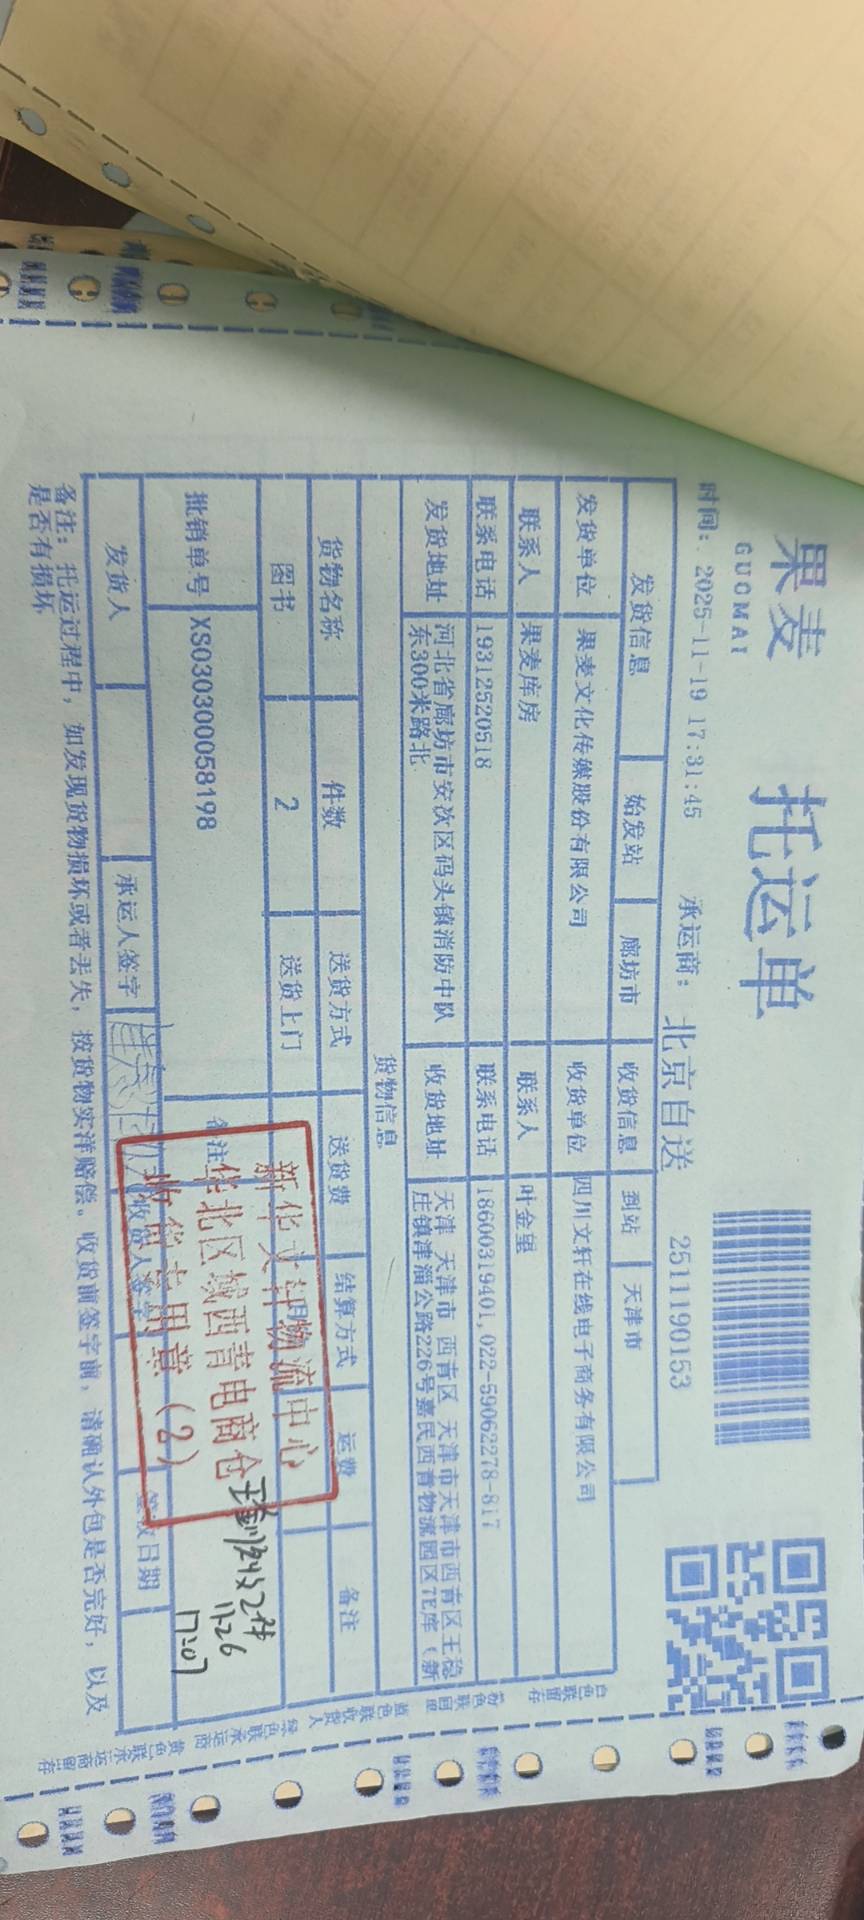 果麦
GUOMAI
托运单
时间: 2025-11-19 17:31:45 承运商: 北京自送 2511190153
发货信息 始发站 廊坊市 收货信息 到站 天津市
发货单位 果麦文化传媒股份有限公司 收货单位 四川文轩在线电子商务有限公司
联系人 果麦库房 联系人 叶金星
联系电话 19312520518 联系电话 18600319401,022-59062278-817
发货地址 河北省廊坊市安次区码头镇消防中队
东300米路北
收货地址 天津 天津市 西青区 天津市天津市西青区王稳
庄镇津淄公路226号嘉民西青物流园区7E库(新
货物信息
货物名称 件数 送货方式 送货费 结算方式 运费 备注
图书 2 送货上门
批销单号 XS030300058198 备注
新华文轩物流中心
华北区域西青电商仓
收货专用章(2)
11-26
17:07
发货人 承运人签字 收货人签字 签收日期
备注: 托运过程中, 如发现货物损坏或者丢失, 按货物实洋赔偿。收货前签字前, 请确认外包是否完好, 以及
是否有损坏
白色联留存
粉色联回单
蓝色联收货人
绿色联承运商
黄色联承运商留存